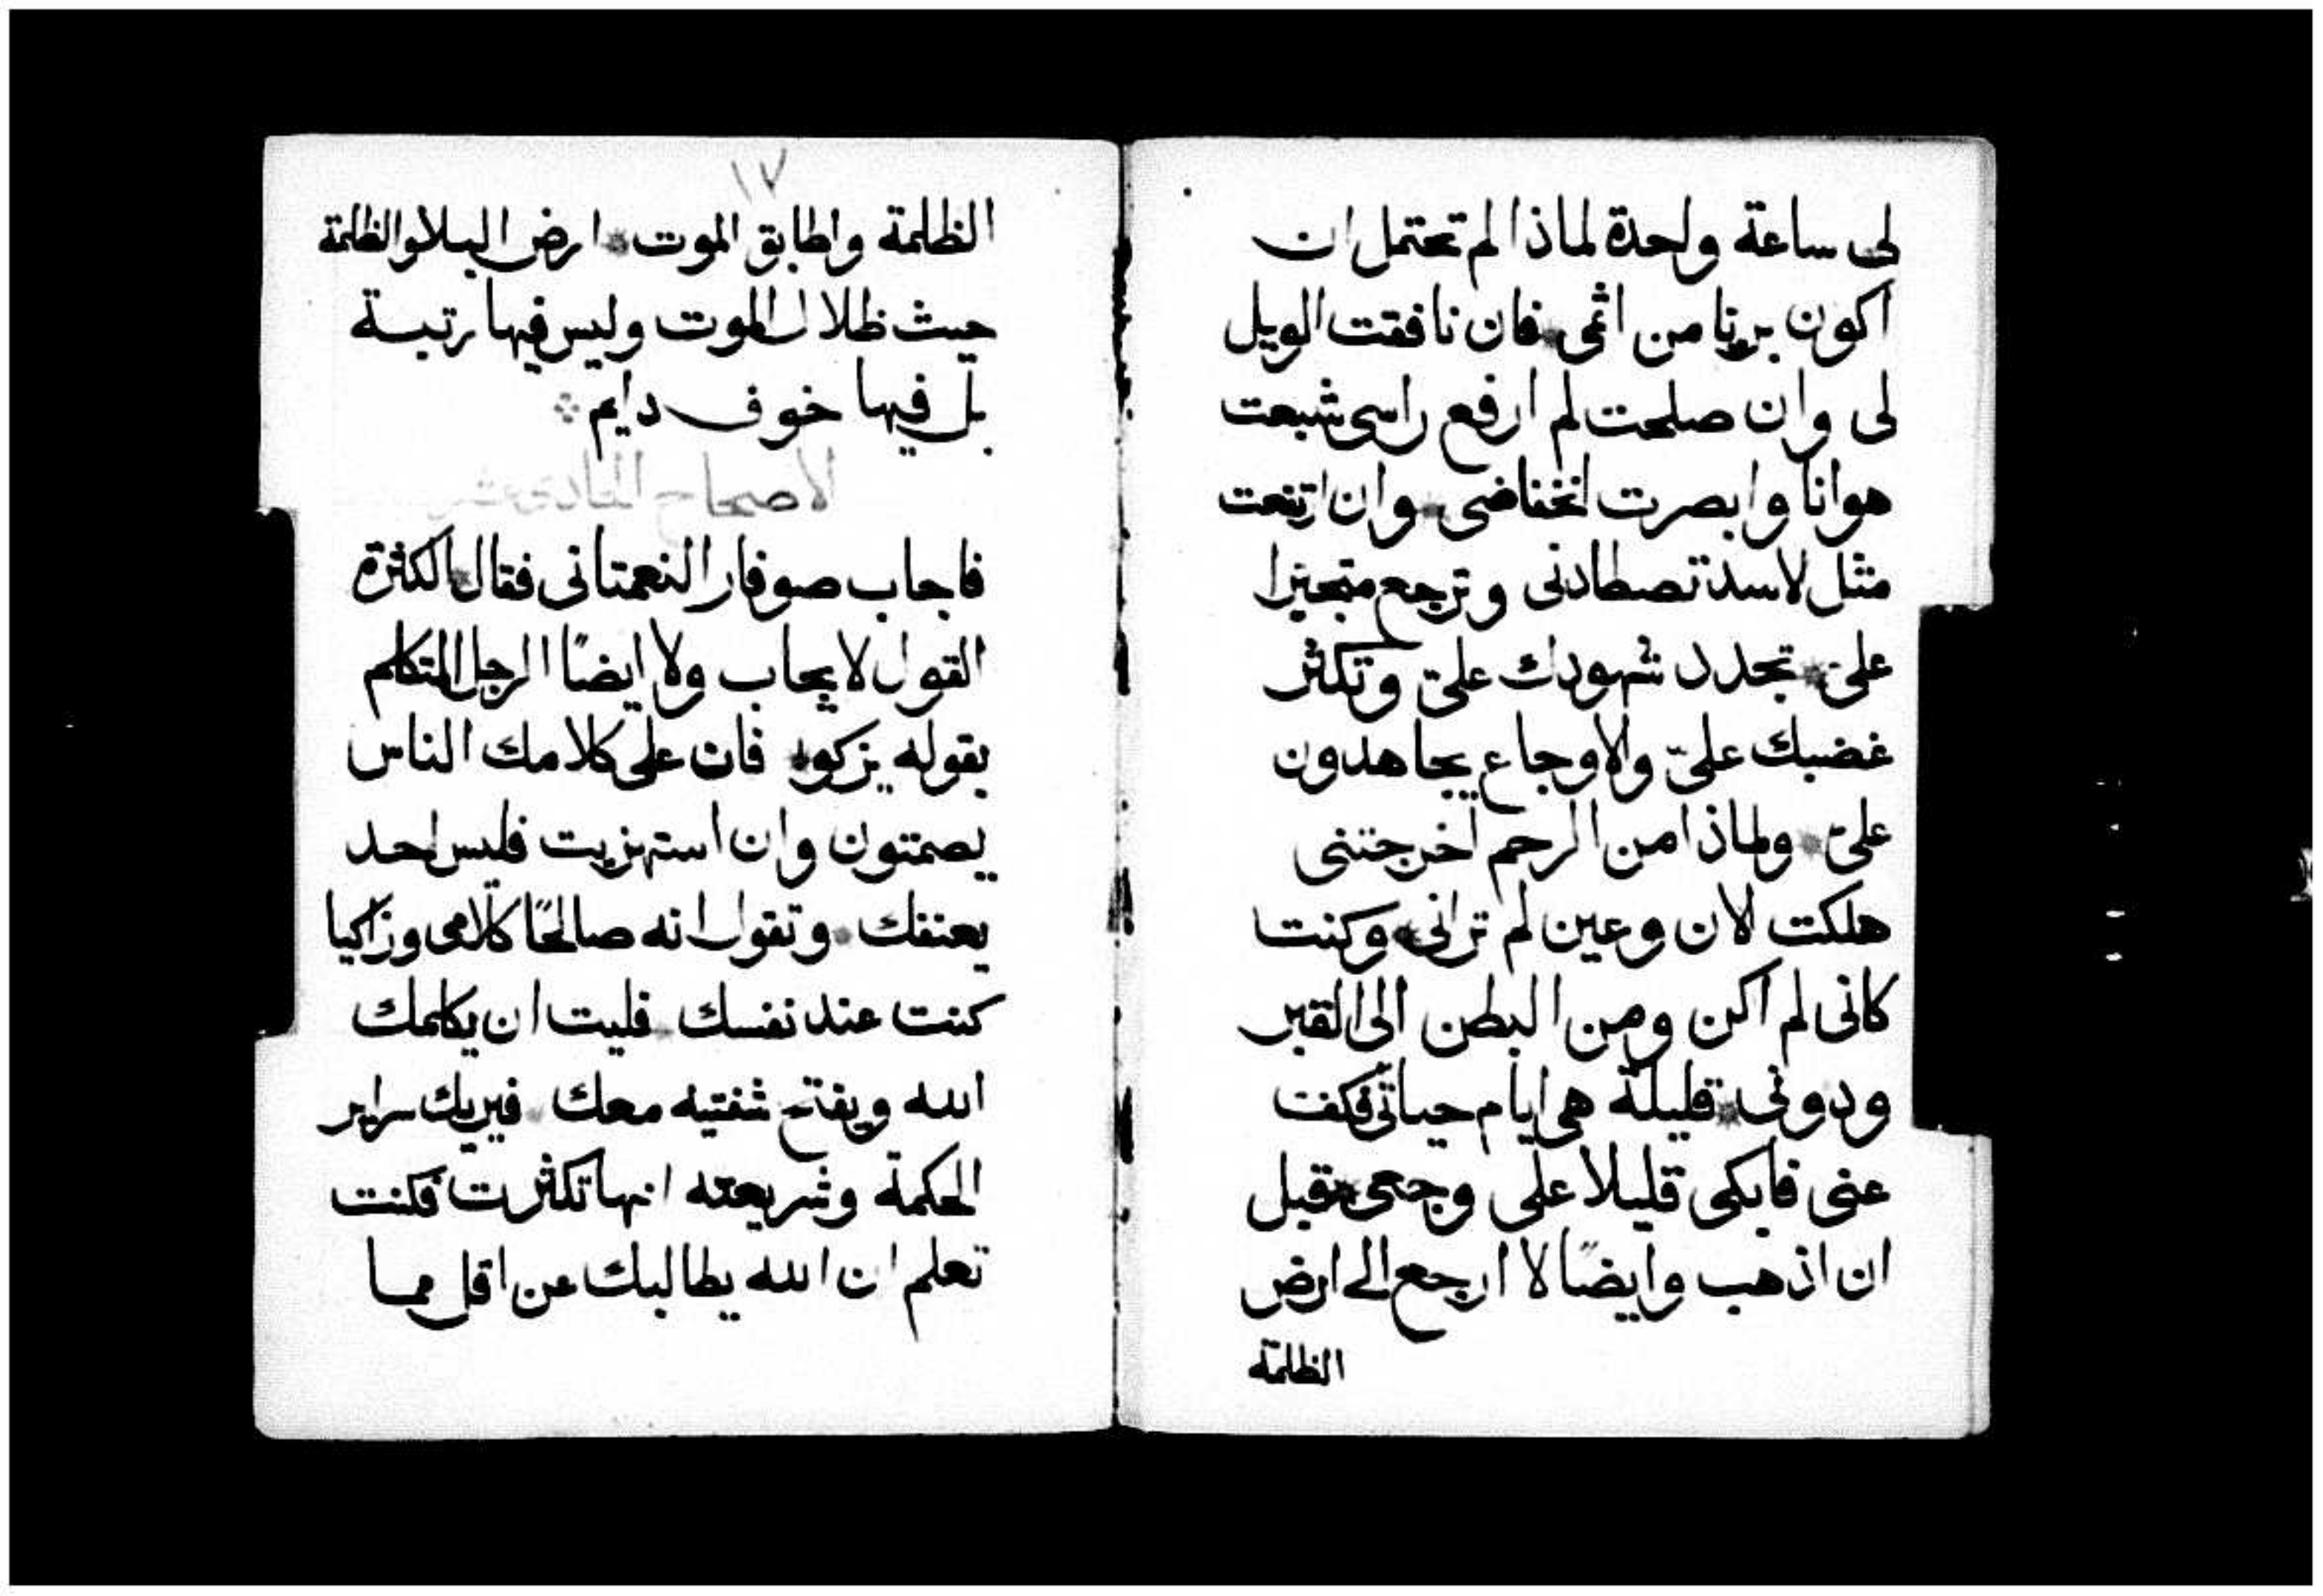 لى ساعة واحدة لماذا لم تحتمل ان
اكون بريا من اثمى فان نافقت الويل
لى وان صلحت لم ارفع راسى شبعت
هوانا وابصرت انخفاضى وان
مثل لاسد تصطادنى وترجع متجبرا
علىّ تجدد شهودك علىّ وتكثر
غضبك علىّ والاوجاع يجاهدون
علىّ ولماذا من الرحم اخرجتنى
هلكت لان وعين لم ترانى وكنت
كانى لم اكن ومن البطن الى القبر
ودونى قليلة هى ايام حياتى فكفت
عنى فابكى قليلا على وجعى قبل
ان اذهب وايضًا لا ارجع الى ارض
الظلمة
١٧
الظلمة واطابق الموت ارض البلا والظلمة
حيث ظلال الموت وليس فيها رتبة
بل فيها خوف دايم
الاصحاح الحادى عشر
فاجاب صوفار النعمتانى فقال الكثرة
القول لا يجاب ولا ايضًا الرجل المتكلم
بقوله يزكو فان على كلامك الناس
يصمتون وان استهزيت فليس احد
يعنفك وتقول انه صالحًا كلامى وزاكيا
كنت عند نفسك فليت ان يكلمك
الله ويفتح شفتيه معك فيريك سراير
الحكمة وشريعته انها تكثرت فكنت
تعلم ان الله يطالبك عن اقل مما